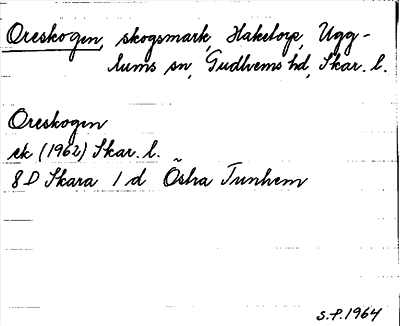 Oreskogen, skogsmark, Hakelorp, Ugg-
lums sn, Gudhems hd, Skar. l.
Oreskogen
ek (1962) Skar. l.
8D Skara 1 d Östra Tunhem
S.P. 1964